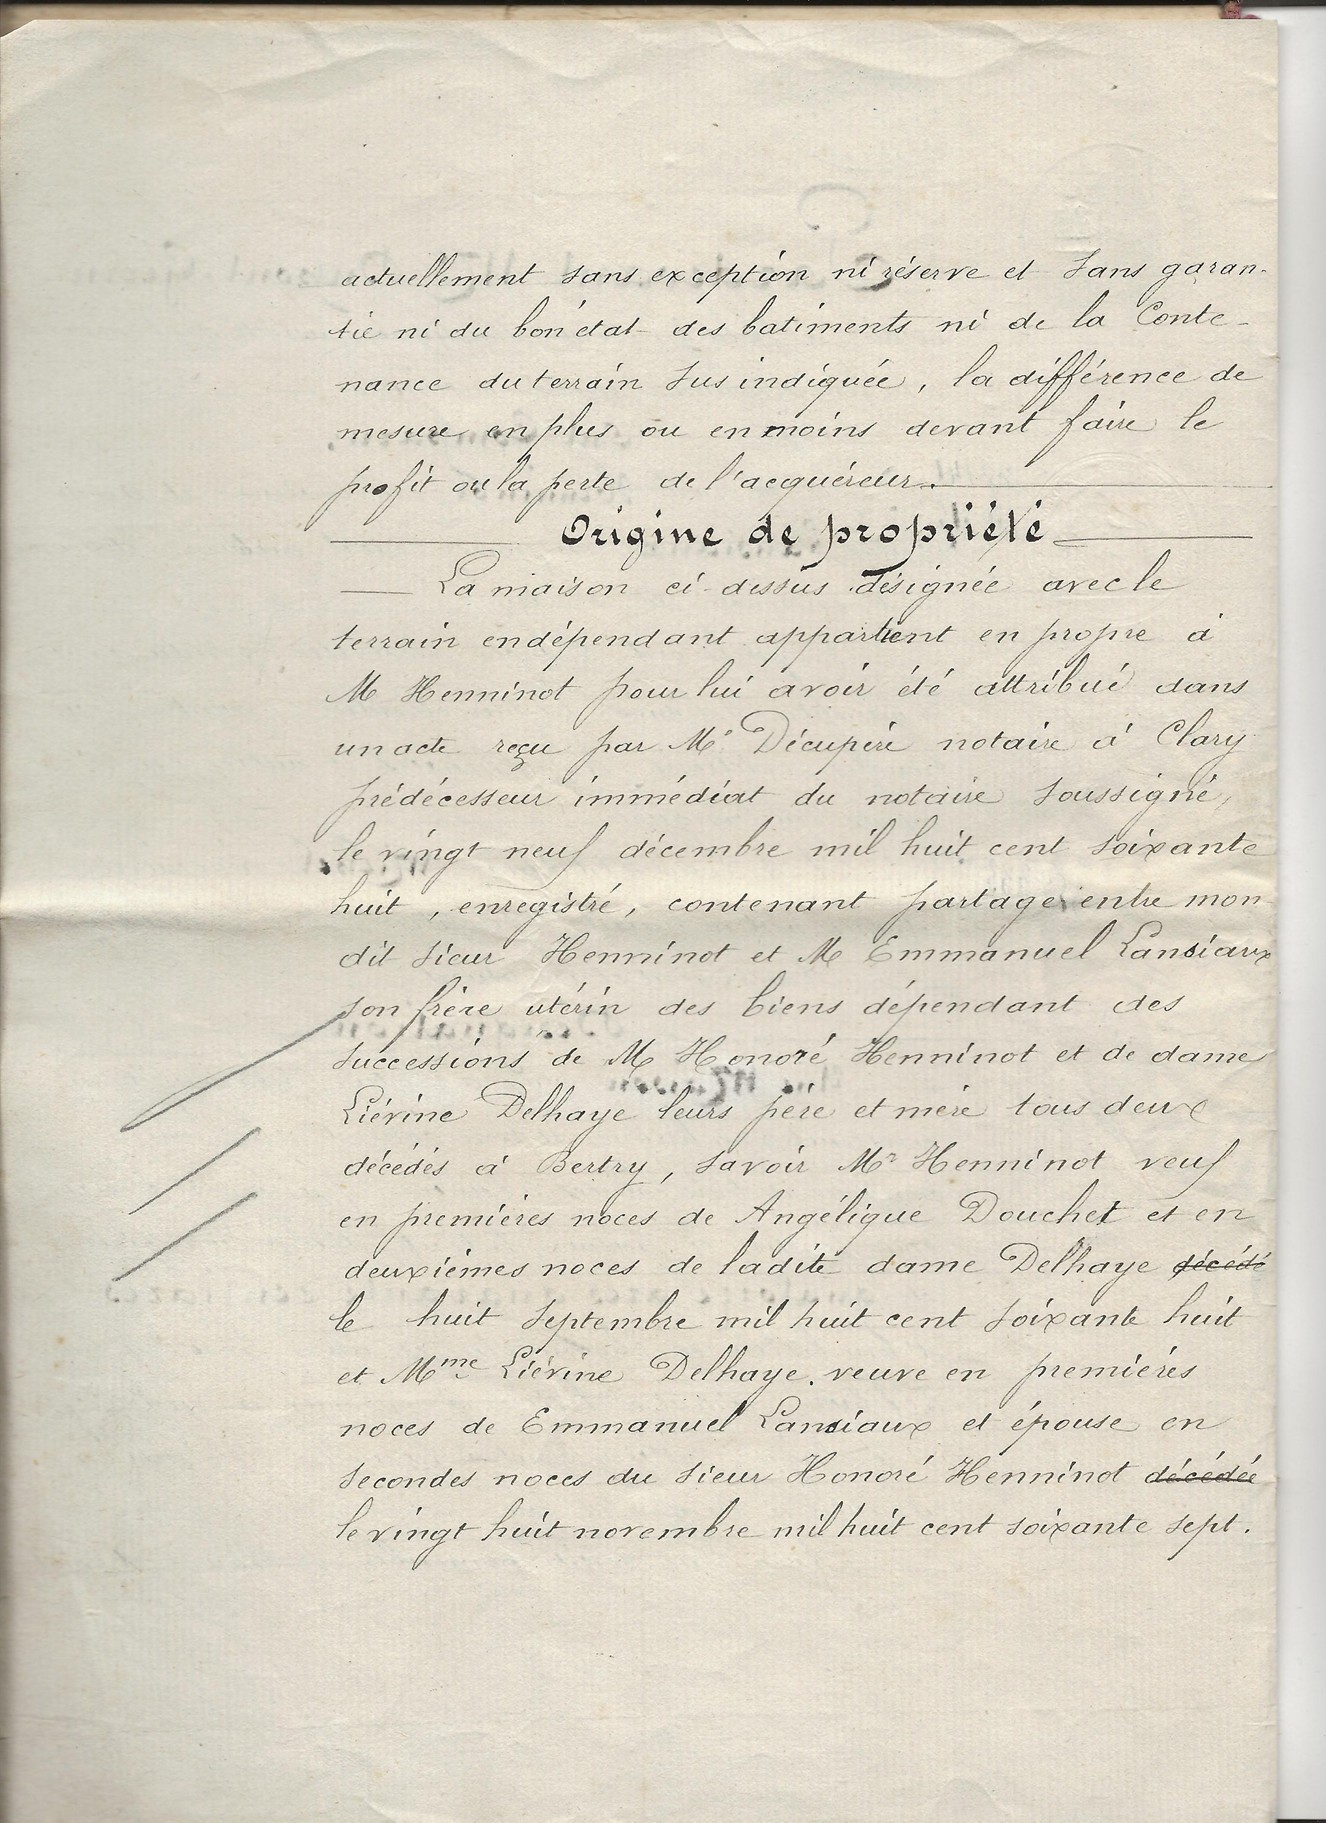 actuellement sans exception ni réserve et sans garan-
tie ni du bon état des batiments ni de la Conte-
nance du terrain sus indiquée, la différence de
mesure en plus ou en moins devant faire le
profit ou la perte de l'acquéreur.
Origine de propriété
La maison ci-dessus désignée avec le
terrain en dépendant appartient en propre à
M Henninot pour lui avoir été attribué dans
un acte reçu par Me Décupère notaire à Clary
prédécesseur immédiat du notaire soussigné,
le vingt neuf décembre mil huit cent soixante
huit, enregistré, contenant partage entre mon
dit sieur Henninot et M Emmanuel Lansiaux
son frère utérin des biens dépendant des
successions de M Honoré Henninot et de dame
Liévine Delhaye leurs père et mère tous deux
décédés à Bertry, savoir Mr Henninot veuf
en premières noces de Angélique Douchet et en
deuxièmes noces de ladite dame Delhaye décédé
le huit septembre mil huit cent soixante huit
et Mme Liévine Delhaye. veuve en premières
noces de Emmanuel Lansiaux et épouse en
secondes noces du sieur Honoré Henninot décédée
le vingt huit novembre mil huit cent soixante sept.